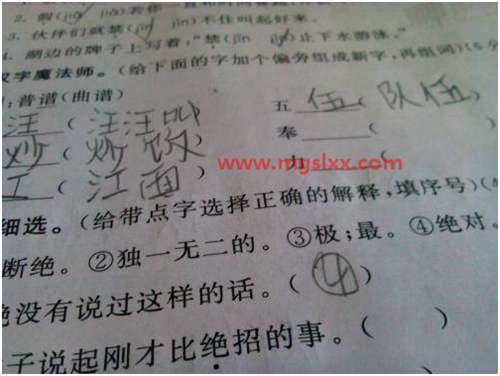 3. 伙伴们就禁(jīn jìn)不住叫起好来。
4. 湖边的牌子上写着,“禁(jīn jìn)止下水游泳。”
汉字魔法师。(给下面的字加个偏旁组成新字,再组词)(6分
:普谱(曲谱) 五 伍(队伍)
汪(汪汪叫 奉 (
炒(炒饭 力 (
www.mgslxx.com
工(江面)
细选。(给带点字选择正确的解释,填序号)(4
断绝。②独一无二的。③极;最。④绝对。
绝没有说过这样的话。(4)
子说起刚才比绝招的事。( )